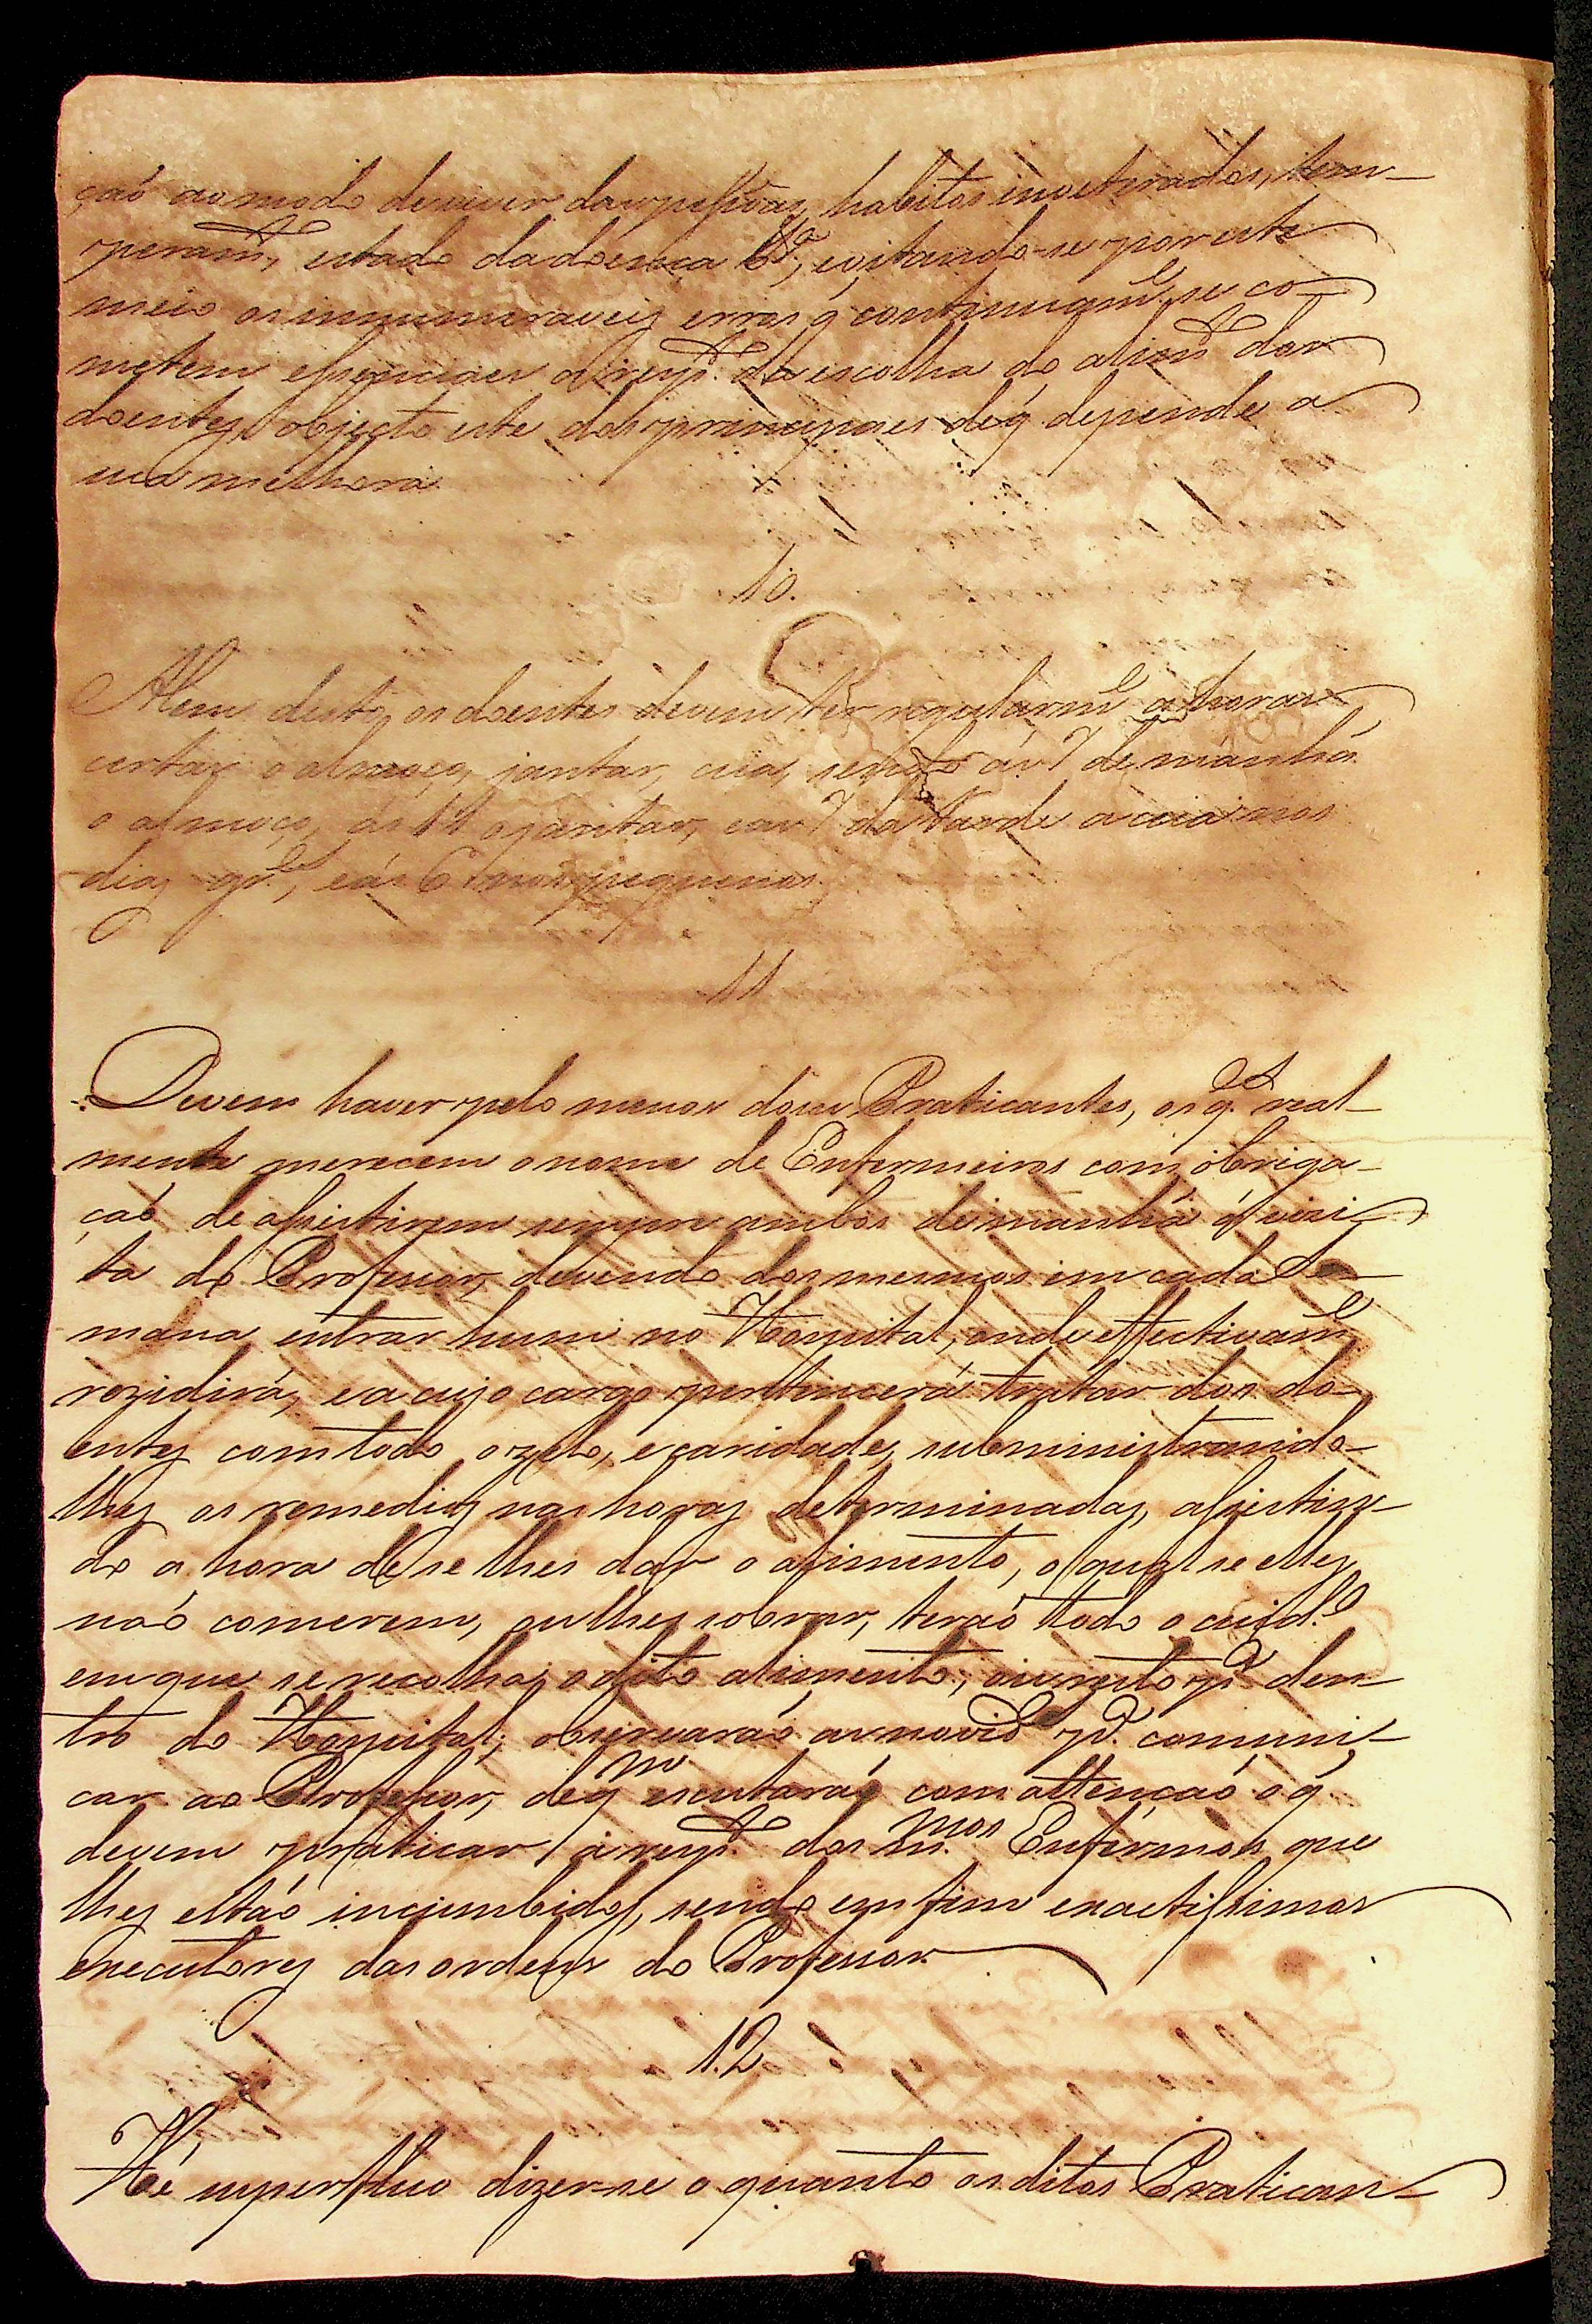 çaó ao modo de viver das pessoas, habitos inveterados, tem-
peram.to, estado da doença &.a, evitando-se por este
meio os innumeraveis erros q̃ continuam.e se co-
metem essenciaes a resp.to da escolha do alim.to dos
doentes, objecto este dos principaes de q̃ depende a
sua melhora.
10.
Alem disto, os doentes devem ter regularm.e a horas
certas o almoço, jantar, ceia, sendo ás 7 de manhã
o almoço, ás 12 o jantar, e ás 7 da tarde a ceia nos
dias gr.es, e ás 6 nos pequenos.
11
Devem haver pelo menos dous Praticantes, os q.es real-
mente merecem o nome de Enfermeiros com obriga-
çaó de assistirem sempre ambos de manhã á vizi-
ta do Professor, devendo dos mesmos em cada Se-
mana entrar hum no Hospital, onde effectivam.e
rezidirá, e a cujo cargo pertencerá tratar dos do-
entes com todo o zelo, e caridade, subministrando-
lhes os remedios nas horas determinadas, assistin-
do a hora de se lhes dar o alimento, o qual se elles
naó comerem, ou lhes sobrar, teraó todo o cuid.o
em que se recolha o dito alimento, p.a den-
tro do Hospital; observaraó as novid.es p.a communi-
car ao Professor, de q.m escutaraó com attençaó o q̃
devem praticar a resp.to dos m.mos Enfermos que
lhes estaó incumbidos, sendo em fim exactissimos
executores das ordens do Professor.
12
Hé superfluo dizer-se o quanto os ditos Pratican-